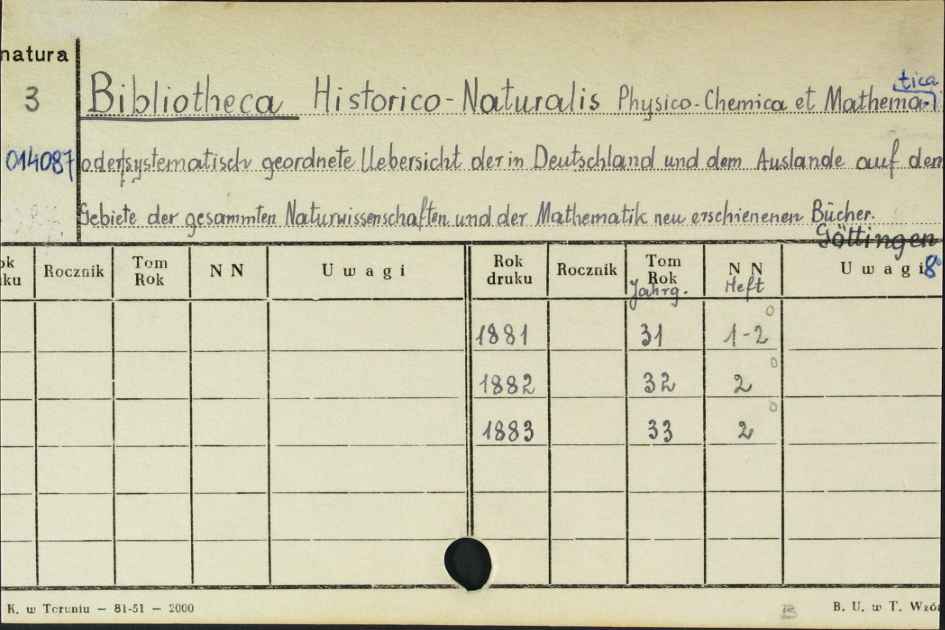 natura
tica
3 Bibliotheca Historico-Naturalis Physico-Chemica et Mathema-
014087 oder systematisch geordnete Uebersicht der in Deutschland und dem Auslande auf dem
Gebiete der gesammten Naturwissenschaften und der Mathematik neu erschienenen Bücher.
Göttingen
8°
ok ku Rocznik Tom Rok N N Uwagi Rok druku Rocznik Tom Rok N N Uwagi
Jahrg. Heft
1881 31 1-2
1882 32 2
1883 33 2
K. w Toruniu — 81-51 — 2000 B. U. w T. Wzó